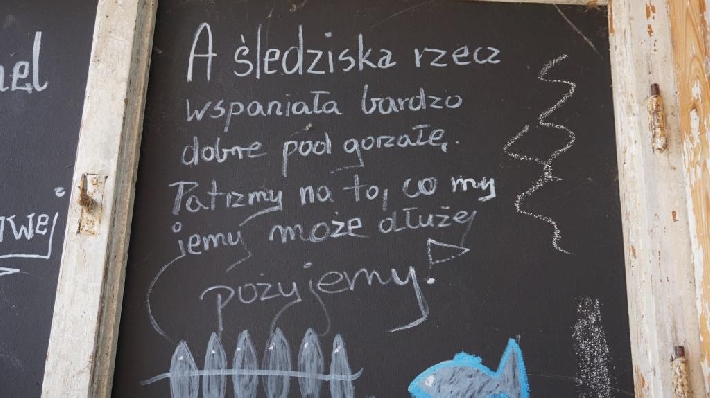 A śledziska rzecz
wspaniała bardzo
dobre pod gorzałę.
Patrzmy na to, co my
jemy może dłużej
pożyjemy!